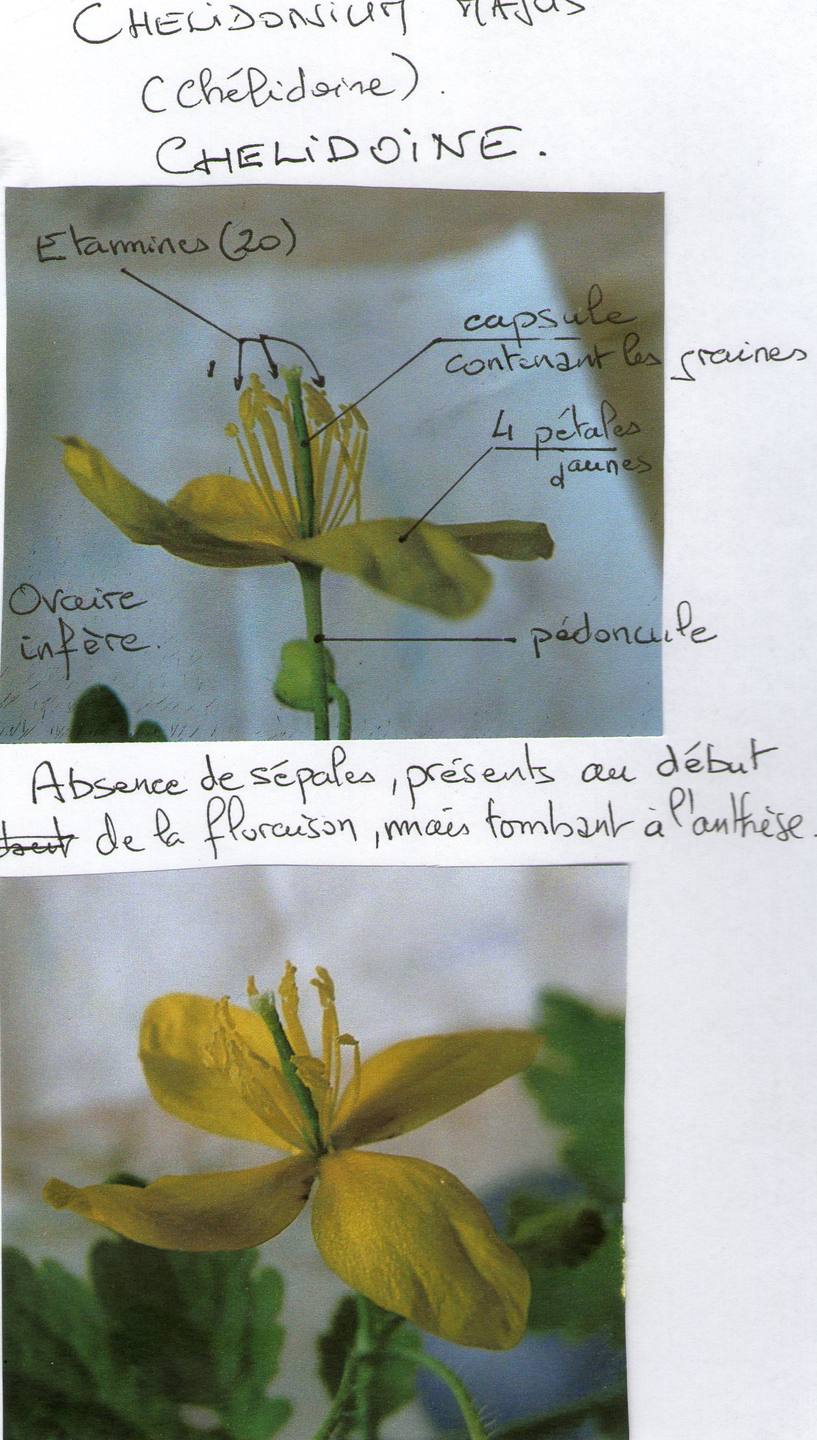 CHELIDONIUM MAJUS
(Chélidoine).
CHELIDOINE.
Etamines (20)
capsule
contenant les graines
4 pétales
jaunes
Ovaire
infère.
pédoncule
Absence de sépales, présents au début
de la floraison, mais tombant à l'anthèse.